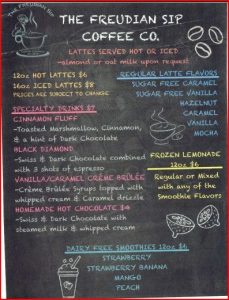 THE FREUDIAN SIP
THE FREUDIAN SIP
COFFEE CO.
LATTES SERVED HOT OR ICED
-almond or oat milk upon request
12oz HOT LATTES $6
16oz ICED LATTES $8
PRICES ARE SUBJECT TO CHANGE
SPECIALTY DRINKS $7
CINNAMON FLUFF
-Toasted Marshmallow, Cinnamon,
& a hint of Dark Chocolate
BLACK DIAMOND
-Swiss & Dark Chocolate combined
with 3 shots of espresso
VANILLA/CARAMEL CRÈME BRÛLÉE
-Crème Brûlée Syrups topped with
whipped cream & Caramel drizzle
HOMEMADE HOT CHOCOLATE $4
-Swiss & Dark Chocolate with
steamed milk & whipped cream
REGULAR LATTE FLAVORS
SUGAR FREE CARAMEL
SUGAR FREE VANILLA
HAZELNUT
CARAMEL
VANILLA
MOCHA
FROZEN LEMONADE
12oz $6
Regular or Mixed
with any of the
Smoothie Flavors
DAIRY FREE SMOOTHIES 12oz $6
STRAWBERRY
STRAWBERRY BANANA
MANGO
PEACH